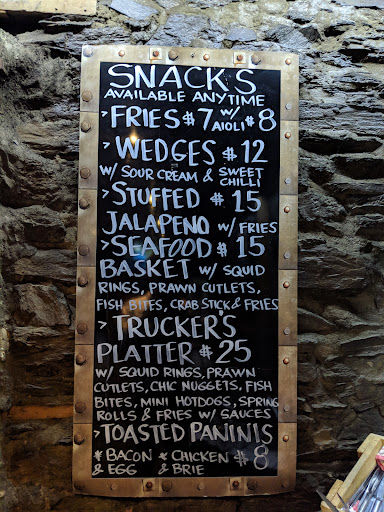 SNACKS
AVAILABLE ANYTIME
> FRIES $7 W/ AIOLI $8
> WEDGES $12
W/ SOUR CREAM & SWEET CHILLI
> STUFFED $15
JALAPENO W/ FRIES
> SEAFOOD $15
BASKET W/ SQUID
RINGS, PRAWN CUTLETS,
FISH BITES, CRAB STICK & FRIES
> TRUCKER'S
PLATTER $25
W/ SQUID RINGS, PRAWN
CUTLETS, CHIC NUGGETS, FISH
BITES, MINI HOTDOGS, SPRING
ROLLS & FRIES W/ SAUCES
> TOASTED PANINIS
* BACON & EGG * CHICKEN & BRIE $8